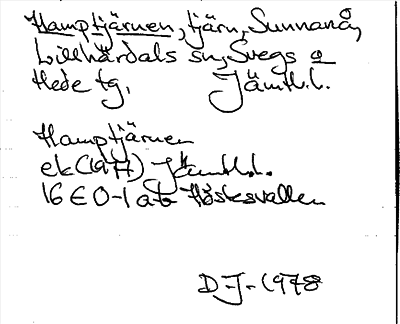 Hamptjärnen, tjärn, Sunnanå,
Lillhärdals sn, Svegs o
Hede tg, Jämtl.l.
Hamptjärnen
ek (1977) Jämtl.l.
16 E 0-1 a-b Hösksvallen
D-J- 1978